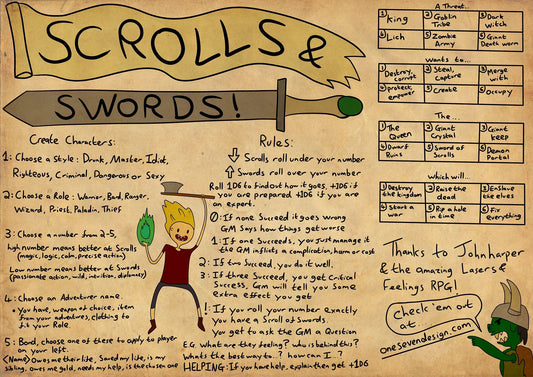 SCROLLS &
SWORDS!
Create Characters:
1: Choose a Style: Drunk, Master, Idiot,
Righteous, Criminal, Dangerous or Sexy
2: Choose a Role: Warrior, Bard, Ranger,
Wizard, Priest, Paladin, Thief
3: Choose a number from 2-5,
high number means better at Scrolls
(magic, logic, calm, precise action)
Low number means better at Swords
(passionate action, wild, invition, diplomacy)
4: Choose an Adventurer name.
• You have, weapon of choice, item
from your adventures, clothing to
fit your Role.
5: Bond, choose one of these to apply to player
on your left.
<Name> Owes me their life, Saved my life, is my
sibling, owes me gold, needs my help, is the chosen one
Rules:
↓ Scrolls roll under your number
↑ Swords roll over your number
Roll 1D6 to find out how it goes, +1D6 if
you are prepared +1D6 if you are
an expert.
0: If none Succeed it goes wrong
GM Says how things get worse
1: If one Succeeds, you just manage it
the GM inflicts a complication, harm or cost
2: If two Succeed, you do it well.
3: If three Succeed, you get Critical
Success, GM will tell you Some
extra effect you get
!: If you roll your number exactly
you have a Scroll of Swords.
you get to ask the GM a Question
E.G. What are they feeling? who is behind this?
Whats the best way to..? how can I ..?
HELPING: If you have help, explain then get +1D6
A Threat...
1 King
2 Goblin Tribe
3 Dark Witch
4 Lich
5 Zombie Army
6 Giant Death worm
Wants to...
1 Destroy, corrupt
2 Steal, Capture
3 Merge with
4 protect, empower
5 Create
6 Occupy
The...
1 The Queen
2 Giant Crystal
3 Giant keep
4 Dwarf Ruins
5 Sword of Scrolls
6 Demon Portal
Which will...
1 Destroy the kingdom
2 Raise the dead
3 En-Slave the elves
4 Start a war
5 Rip a hole in time
6 Fix everything
Thanks to John harper
& the amazing Lasers &
Feelings RPG!
Check 'em out
at..
onesevendesign.com